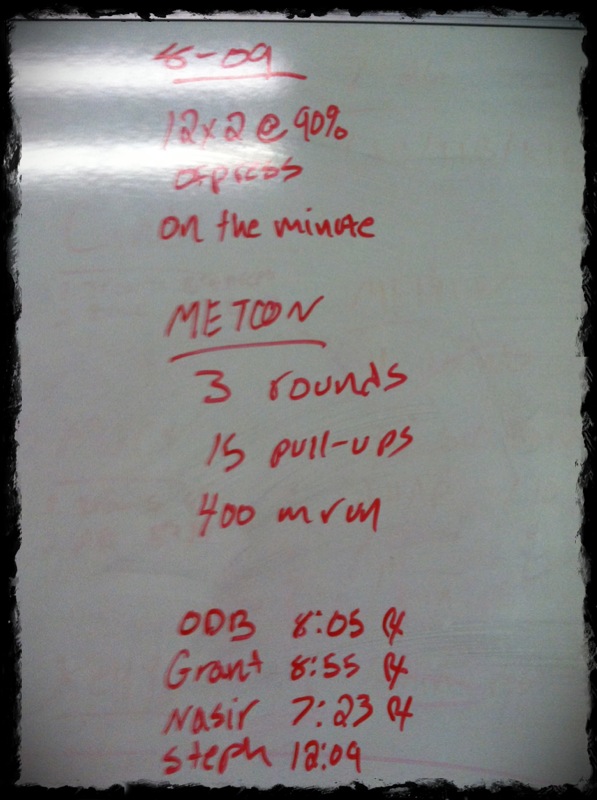 8-09
12x2 @ 90%
on the minute
METCON
3 rounds
15 pull-ups
400 m run
ODB 8:05 Rx
Grant 8:55 Rx
Nasir 7:23 Rx
Steph 12:09